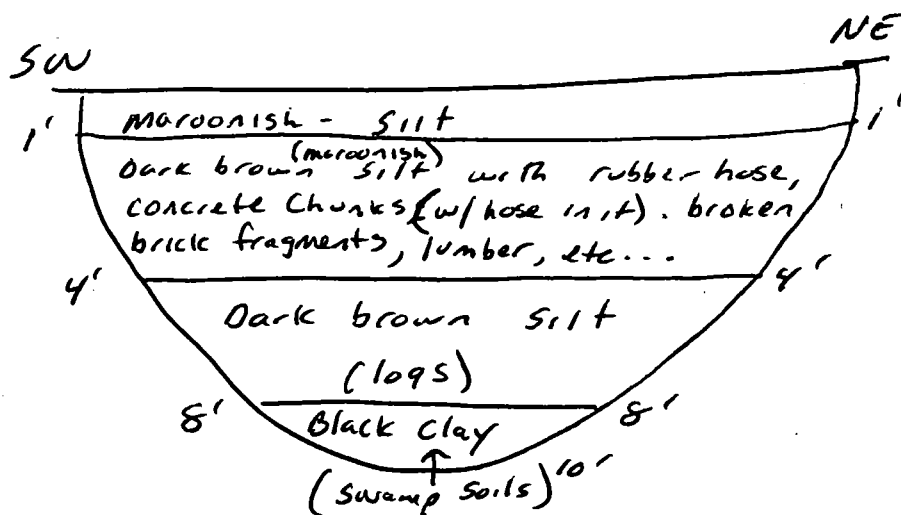 SW NE
maroonish - silt
1' 1'
(maroonish)
Dark brown silt with rubber hose,
concrete chunks (w/hose in it). broken
brick fragments, lumber, etc...
4' 4'
Dark brown silt
(logs)
8' 8'
Black Clay
(swamp soils) 10'